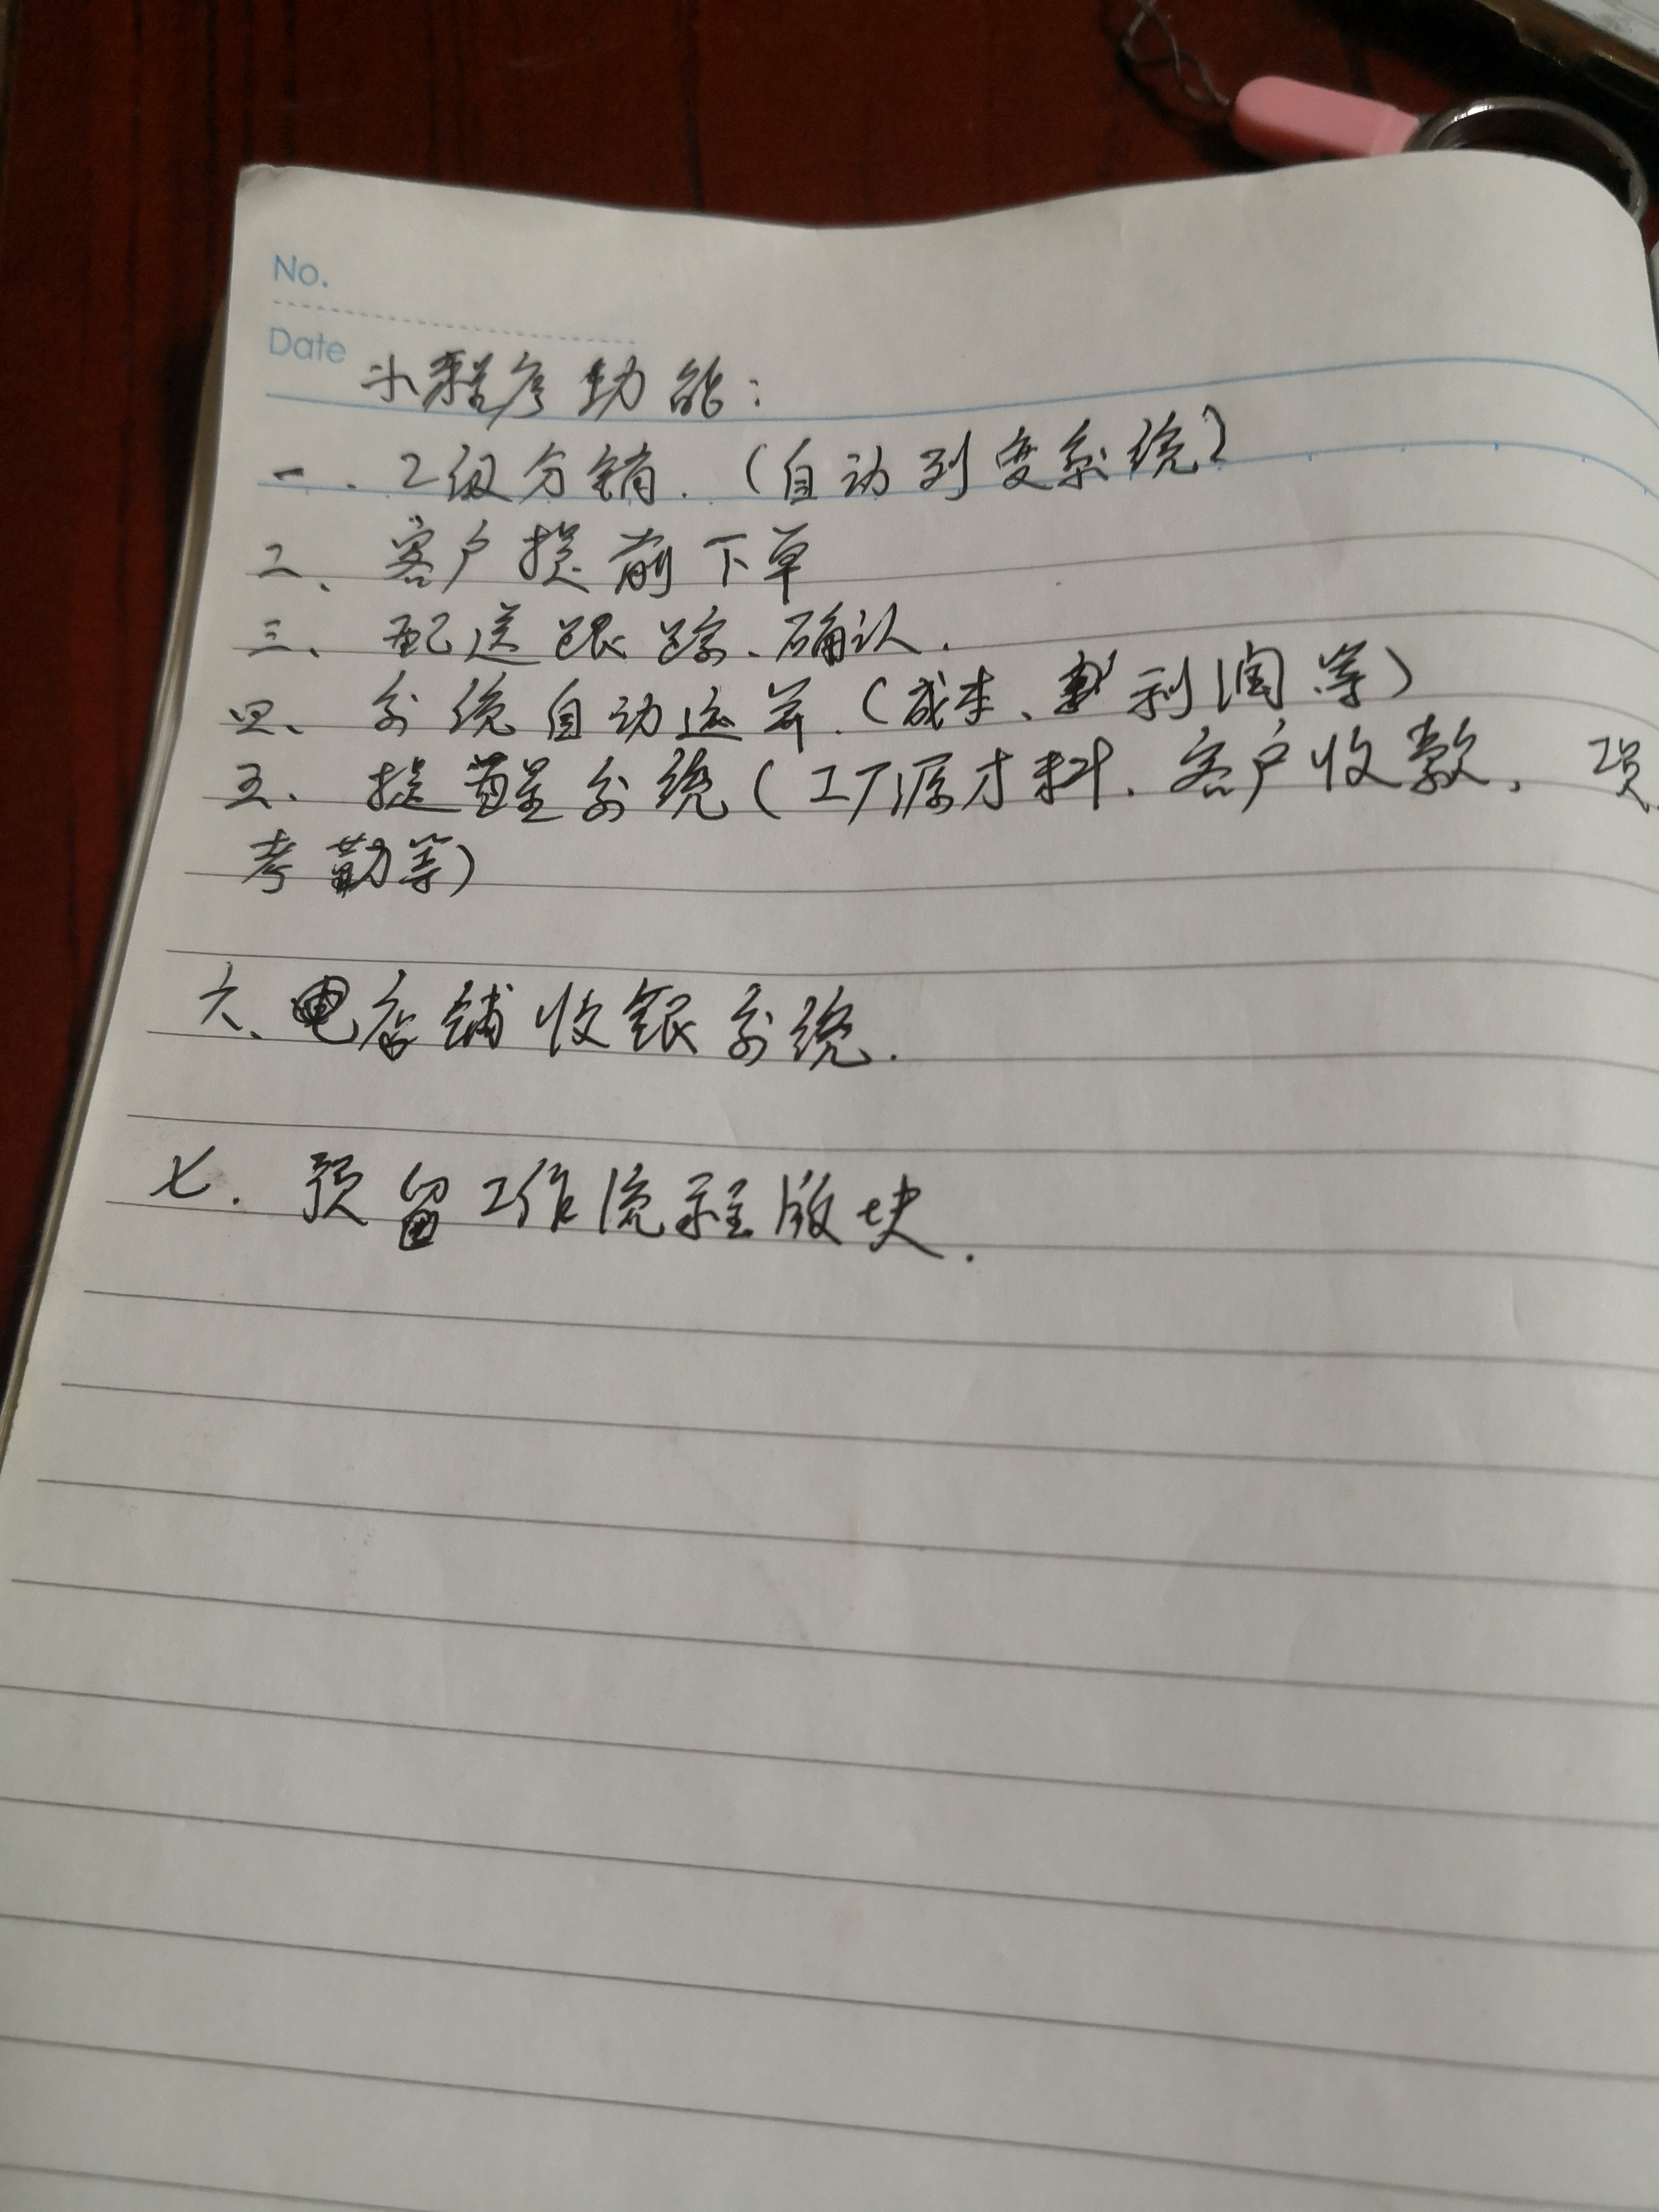 No.
Date
小程序功能：
一.2级分销.(自动列变系统)
二、客户提前下单
三、配送跟踪、确认.
四、系统自动运算.(成本、利润等)
五、提醒系统(工厂原才料.客户收款、
考勤等)
六、店铺收银系统.
七.预留工作流程版块.